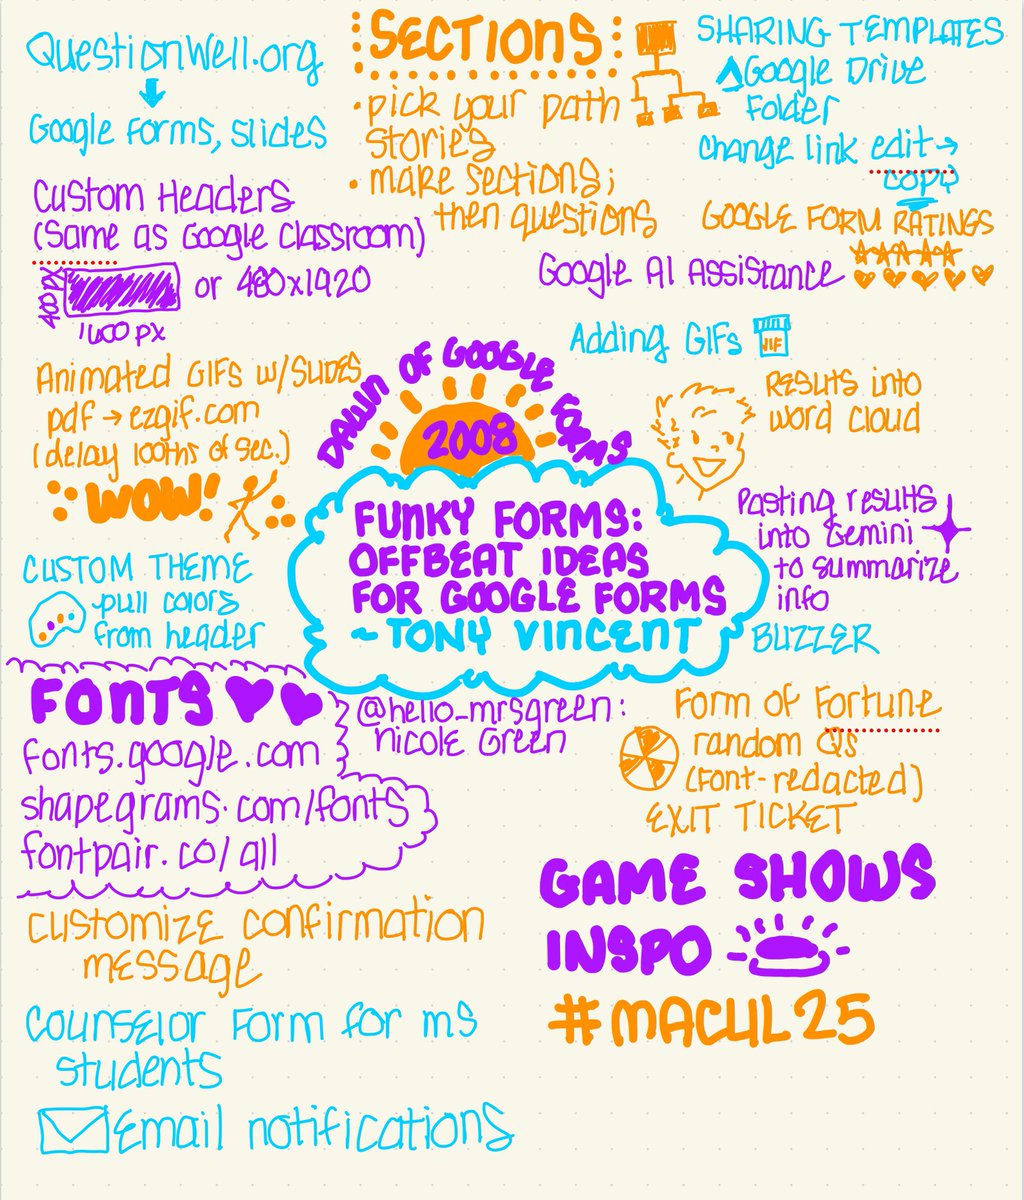 QuestionWell.org
Google Forms, Slides
Custom Headers
(Same as Google Classroom)
400 px
1600 px
or 480x1920
Animated GIFs w/SLIDES
pdf → ezgif.com
(delay 100ths of sec.)
WOW!
CUSTOM THEME
pull colors
from header
FONTS
fonts.google.com
shapegrams.com/fonts
fontpair.co/all
customize confirmation
message
Counselor Form for ms
students
Email notifications
SECTIONS
• pick your path
stories
• make sections;
then questions
SHARING TEMPLATES
Google Drive
Folder
change link edit →
copy
GOOGLE FORM RATINGS
Google AI Assistance
Adding GIFs
GIF
DAWN OF GOOGLE FORMS
2008
FUNKY FORMS:
OFFBEAT IDEAS
FOR GOOGLE FORMS
~TONY VINCENT
@hello_mrsgreen:
Nicole Green
Results into
word cloud
Pasting results
into Gemini
to summarize
info
BUZZER
Form of Fortune
random Qs
(font-redacted)
EXIT TICKET
GAME SHOWS
INSPO
#MACUL25